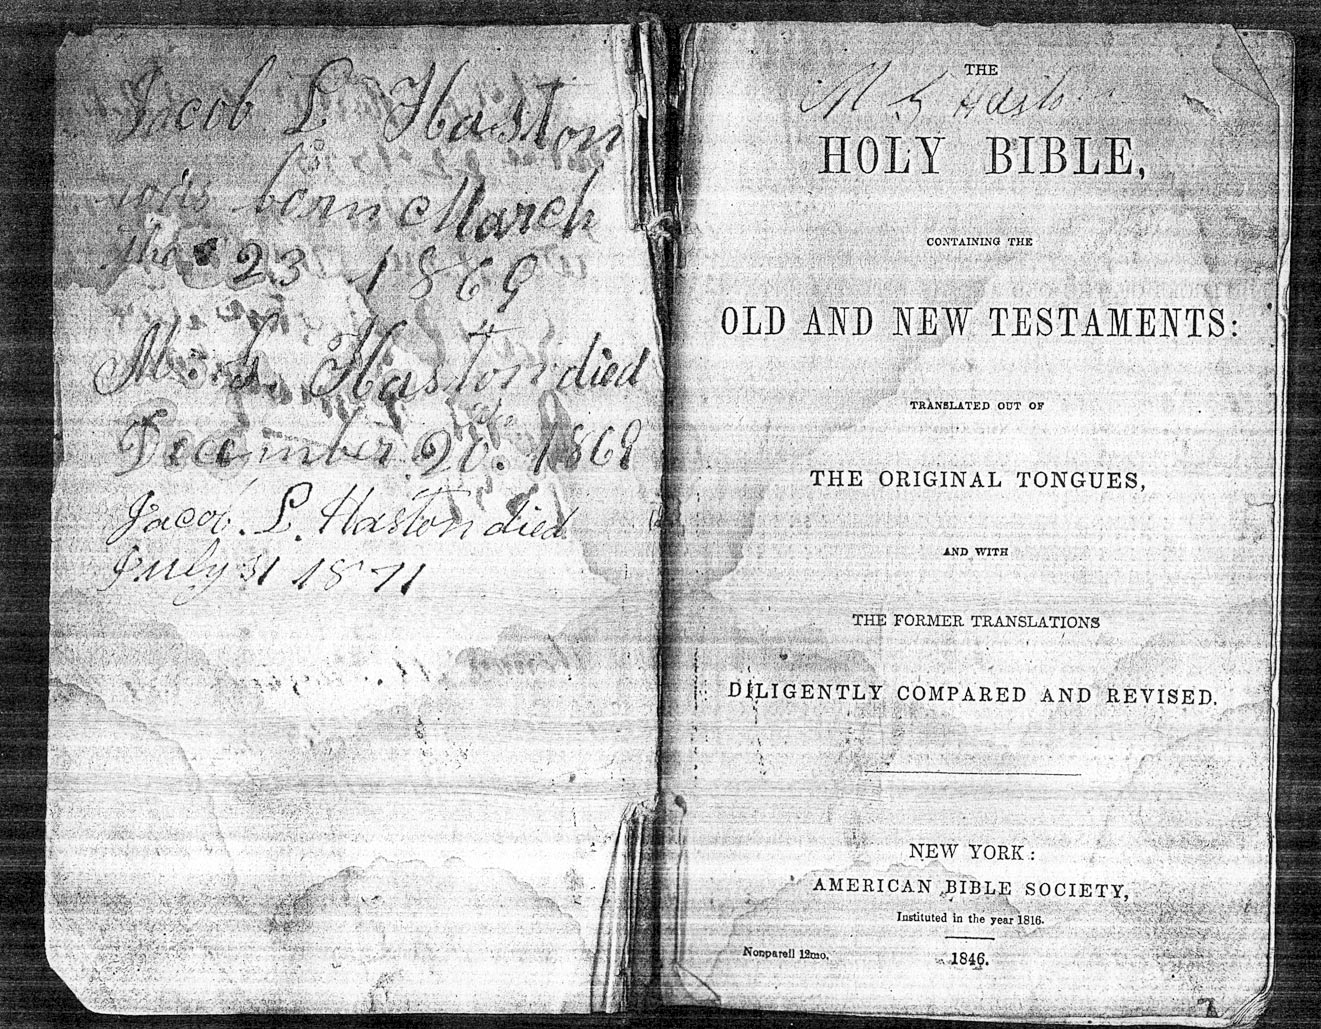 Jacob L Haston
was born March
the 23 1869
M. L. Haston died
December 20. 1869
Jacob. L. Haston died
July 31 1871
THE
M L Hasto
HOLY BIBLE,
CONTAINING THE
OLD AND NEW TESTAMENTS:
TRANSLATED OUT OF
THE ORIGINAL TONGUES,
AND WITH
THE FORMER TRANSLATIONS
DILIGENTLY COMPARED AND REVISED.
NEW YORK:
AMERICAN BIBLE SOCIETY,
Instituted in the year 1816.
Nonpareil 12mo.
1846.